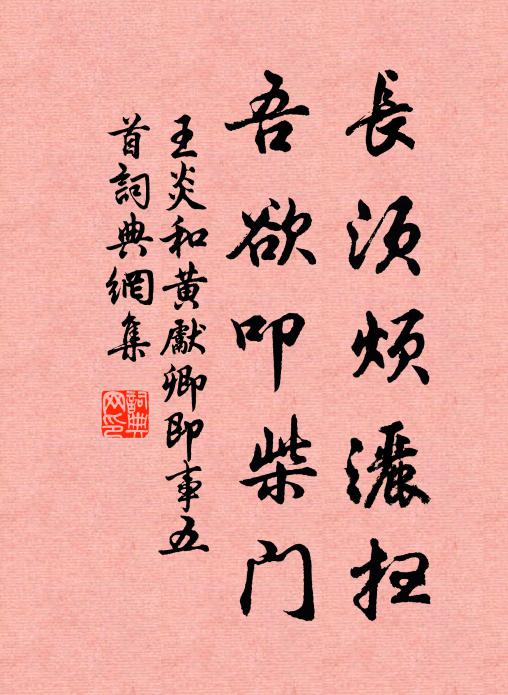 長須煩灑扫
吾欲叩柴门
王炎和黄獻卿即事五
首詞典網集
詞典网印